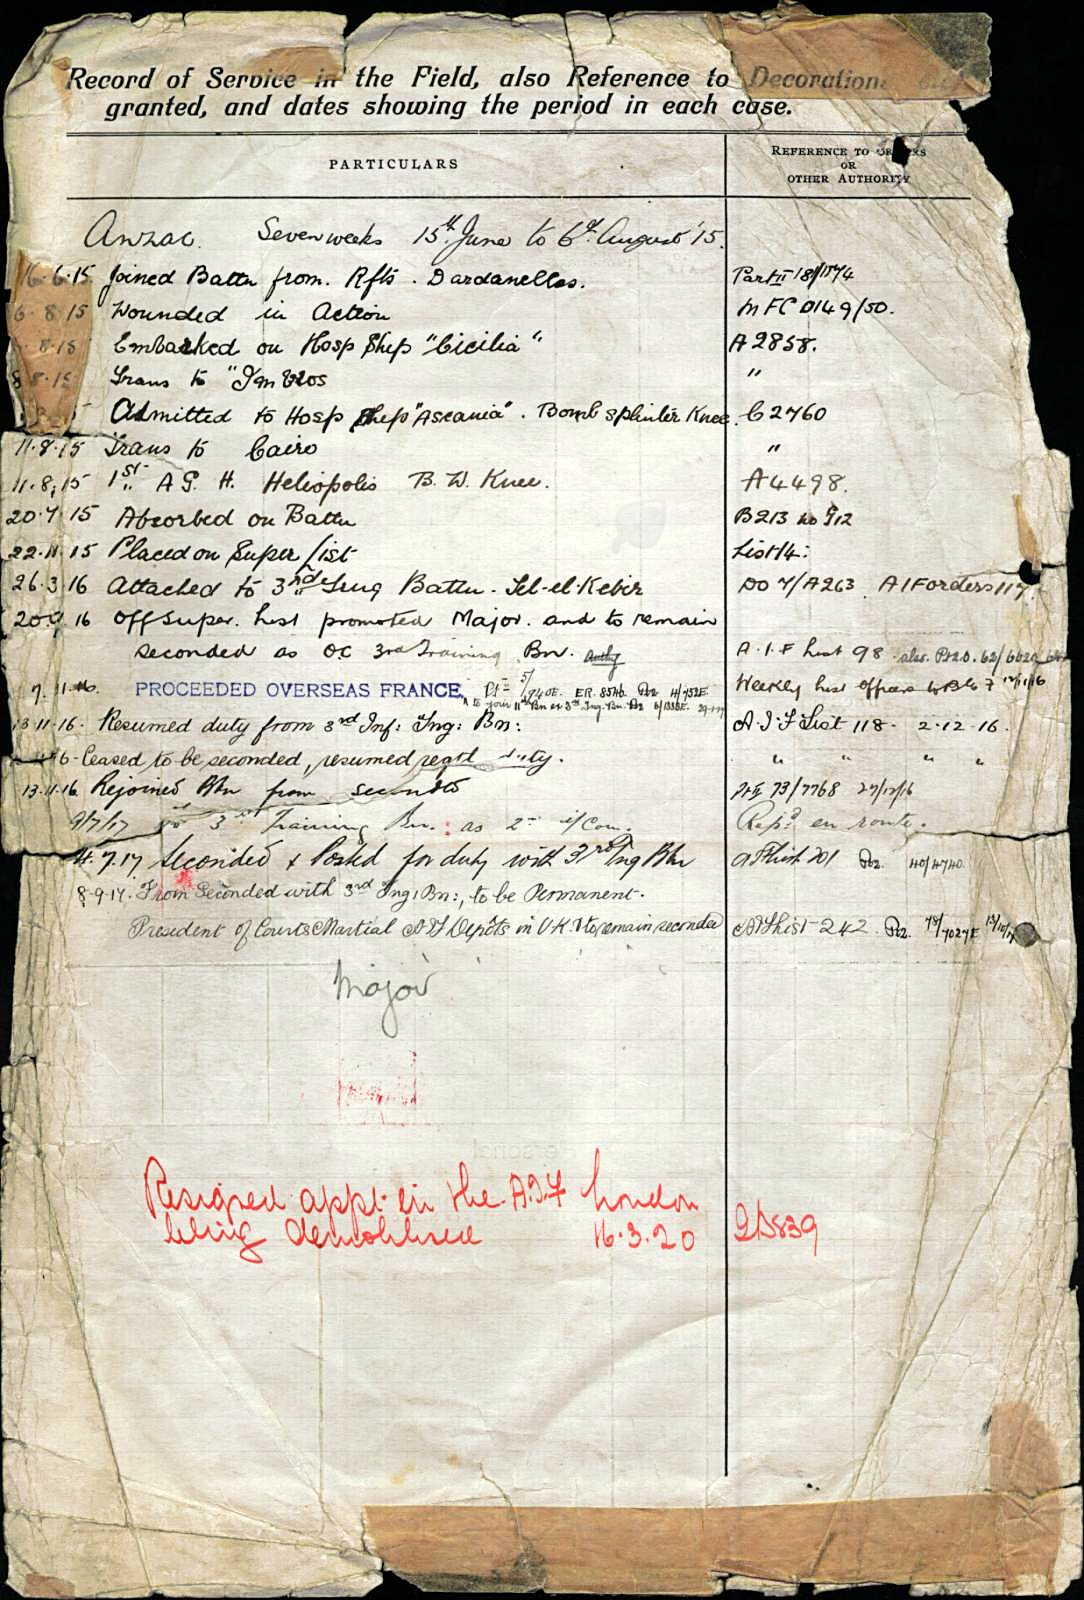 Record of Service in the Field, also Reference to Decorations
granted, and dates showing the period in each case.
PARTICULARS
REFERENCE TO ORDERS
OR
OTHER AUTHORITY
Anzac. Seven weeks 15th June to 6th August '15.
16.6.15 Joined Battn from. Rfts. Dardanelles. Part II 18/1174
6.8.15 Wounded in Action MFC D149/50.
8.15 Embarked on Hosp Ship "Cicilia" A2858.
8.8.15 Trans to "Imbros "
Admitted to Hosp Ship "Ascania". Bomb splinter Knee. C2760
11.8.15 Trans to Cairo "
11.8.15 1st A G. H. Heliopolis B. W. Knee. A4498.
20.7.15 Absorbed on Battn B213 No G12
22.11.15 Placed on Super list List 14:
26.3.16 Attached to 3rd Trng Battn. Tel-el-Kebir DO 7/A263 AIF orders 117
20.9.16 Off Super. list promoted Major. and to remain
seconded as O.C 3rd Training Bn. Authy A.I.F List 98 also
7.11.16. PROCEEDED OVERSEAS FRANCE, Weekly list Officers 12/11/16
to join 11th Bn ex 3rd Trg. Bn.
13.11.16. Resumed duty from 3rd Inf: Tng: Bn: A.I.F List 118. 2.12.16.
Ceased to be seconded, resumed regtl duty. " " " "
13.11.16 Rejoined Btn from secondto Pt II 73/7768 27/12/16
9/7/17 to 3rd Training Bn. as 2nd i/Com. Rep'd en route.
4.7.17 Seconded & Posted for duty with 3rd Tng Btn 201 40/4740
8-9-17. From Seconded with 3rd Tng: Bn:, to be Permanent.
President of Courts Martial AIF Depots in U.K. & to remain seconded AIF List 242 78/7027E
Major
Resigned appt. in the A.I.F London
being demobilised 16.3.20 2D839